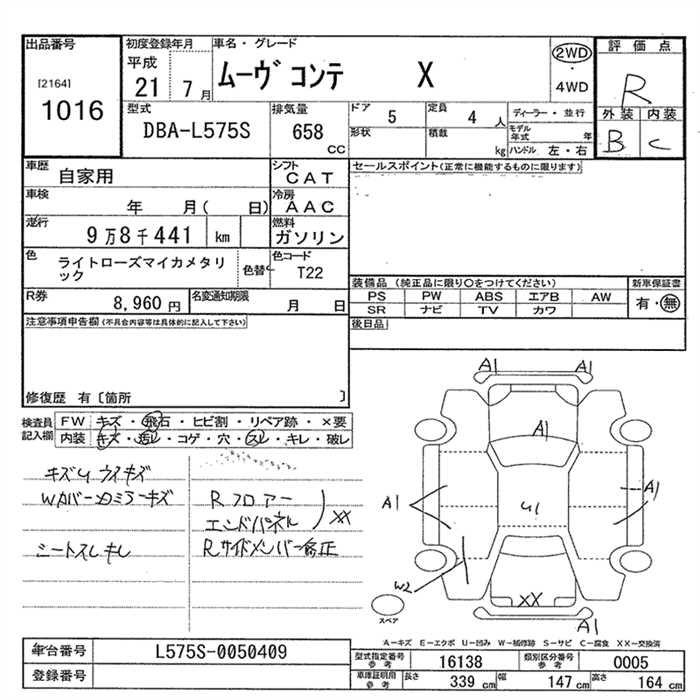 出品番号
[2164]
1016
初度登録年月
平成
21 7月
車名・グレード
ムーヴ コンテ X
2WD
・
4WD
評価点
R
外装 内装
B C
型式
DBA-L575S
排気量
658
CC
ドア 5
形状
定員 4 人
積載 kg
ディーラー・並行
モデル年式 年
ハンドル 左・右
車歴
自家用
シフト
CAT
車検
年 月( 日)
冷房
AAC
走行
9万8千441 km
燃料
ガソリン
色
ライトローズマイカメタリ
ック
色替
色コード
T22
R券
8,960円
名変通知期限
月 日
セールスポイント(正常に機能するものに限ります)
装備品(純正品に限り○をつけてください)
PS PW ABS エアB AW
SR ナビ TV カワ
新車保証書
有・無
後日品
注意事項申告欄(不具合内容等は具体的に記入して下さい)
修復歴 有〔箇所 〕
検査員
記入欄
FW キズ・飛石・ヒビ割・リペア跡・×要
内装 キズ・汚レ・コゲ・穴・スレ・キレ・破レ
キズU ウスキズ
Rフロアー
エンドパネル
XX
シートスレ キレ
Rサイドメンバー修正
A1 A1
A1
A1 U1 A1
W2
XX
A1 A1
スペア
A-キズ E-エクボ U-凹み W-補修跡 S-サビ C-腐食 XX-交換済
車台番号
L575S-0050409
登録番号
型式指定番号
参考
16138
類別区分番号
参考
0005
車庫証明用
参考
長さ 339 cm 幅 147 cm 高さ 164 cm